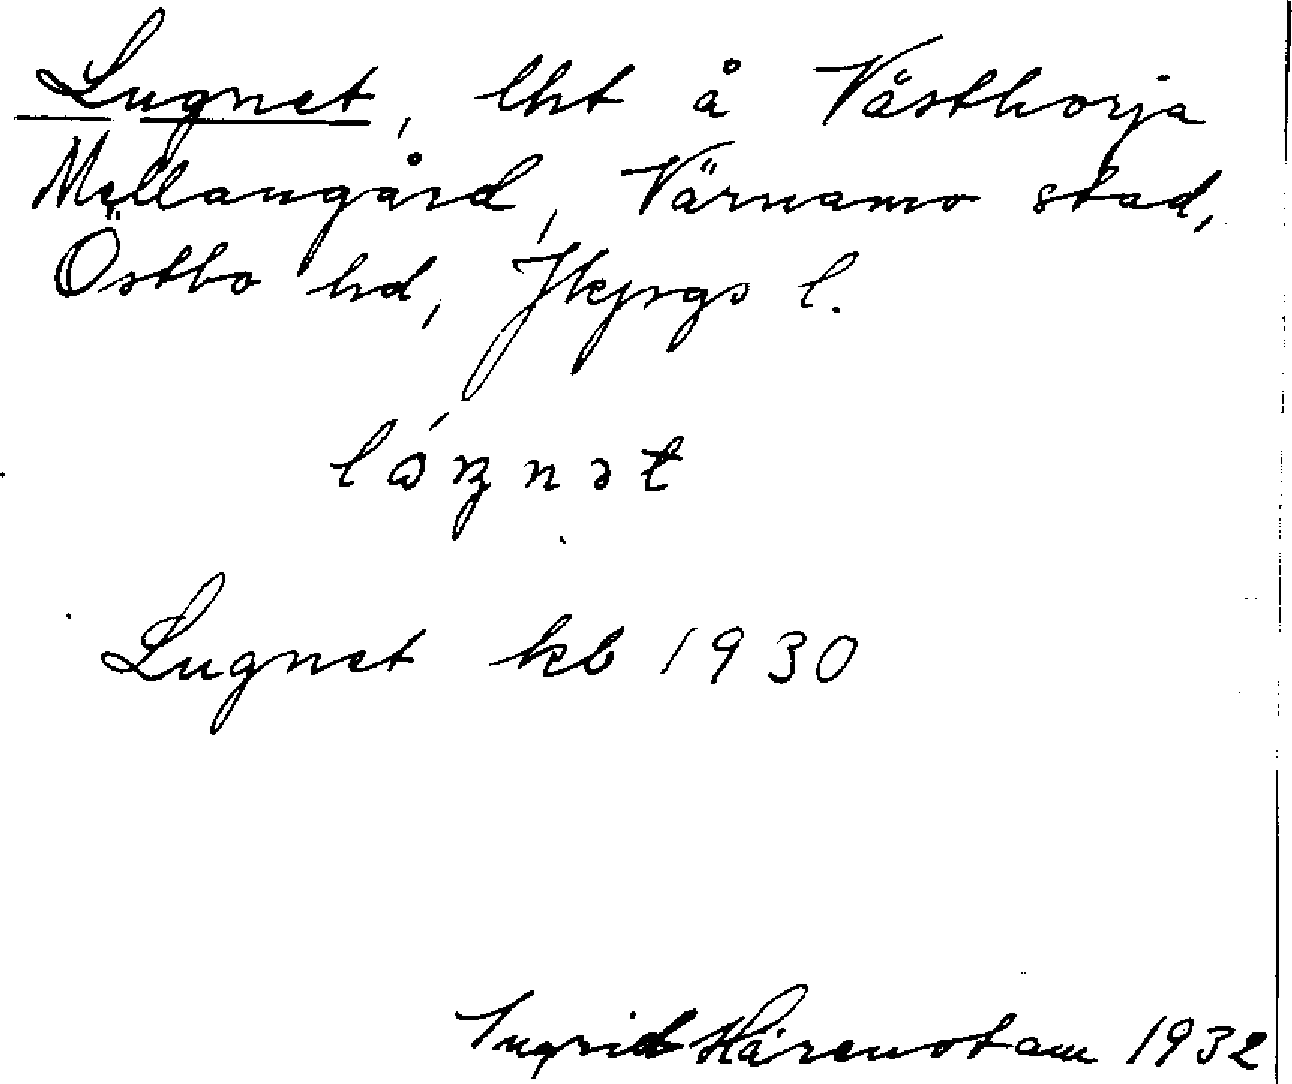 Lugnet, lht å Västhorja
Mellangård, Värnamo stad,
Östbo hd, Jkpgs l.
Lugnet kb 1930
Ingrid Härenstam 1932